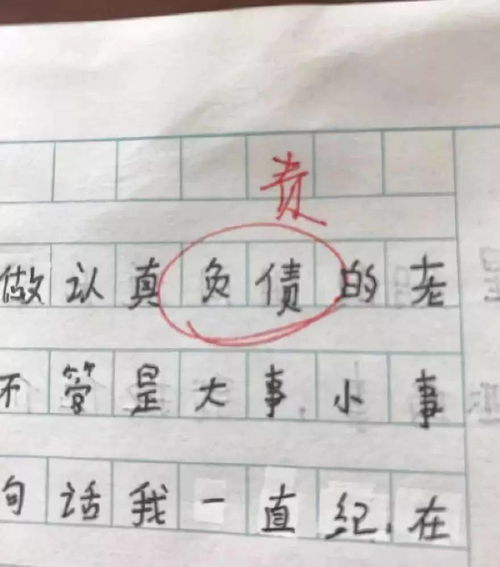 责
做认真负债的老
不管是大事,小事
句话我一直纪在